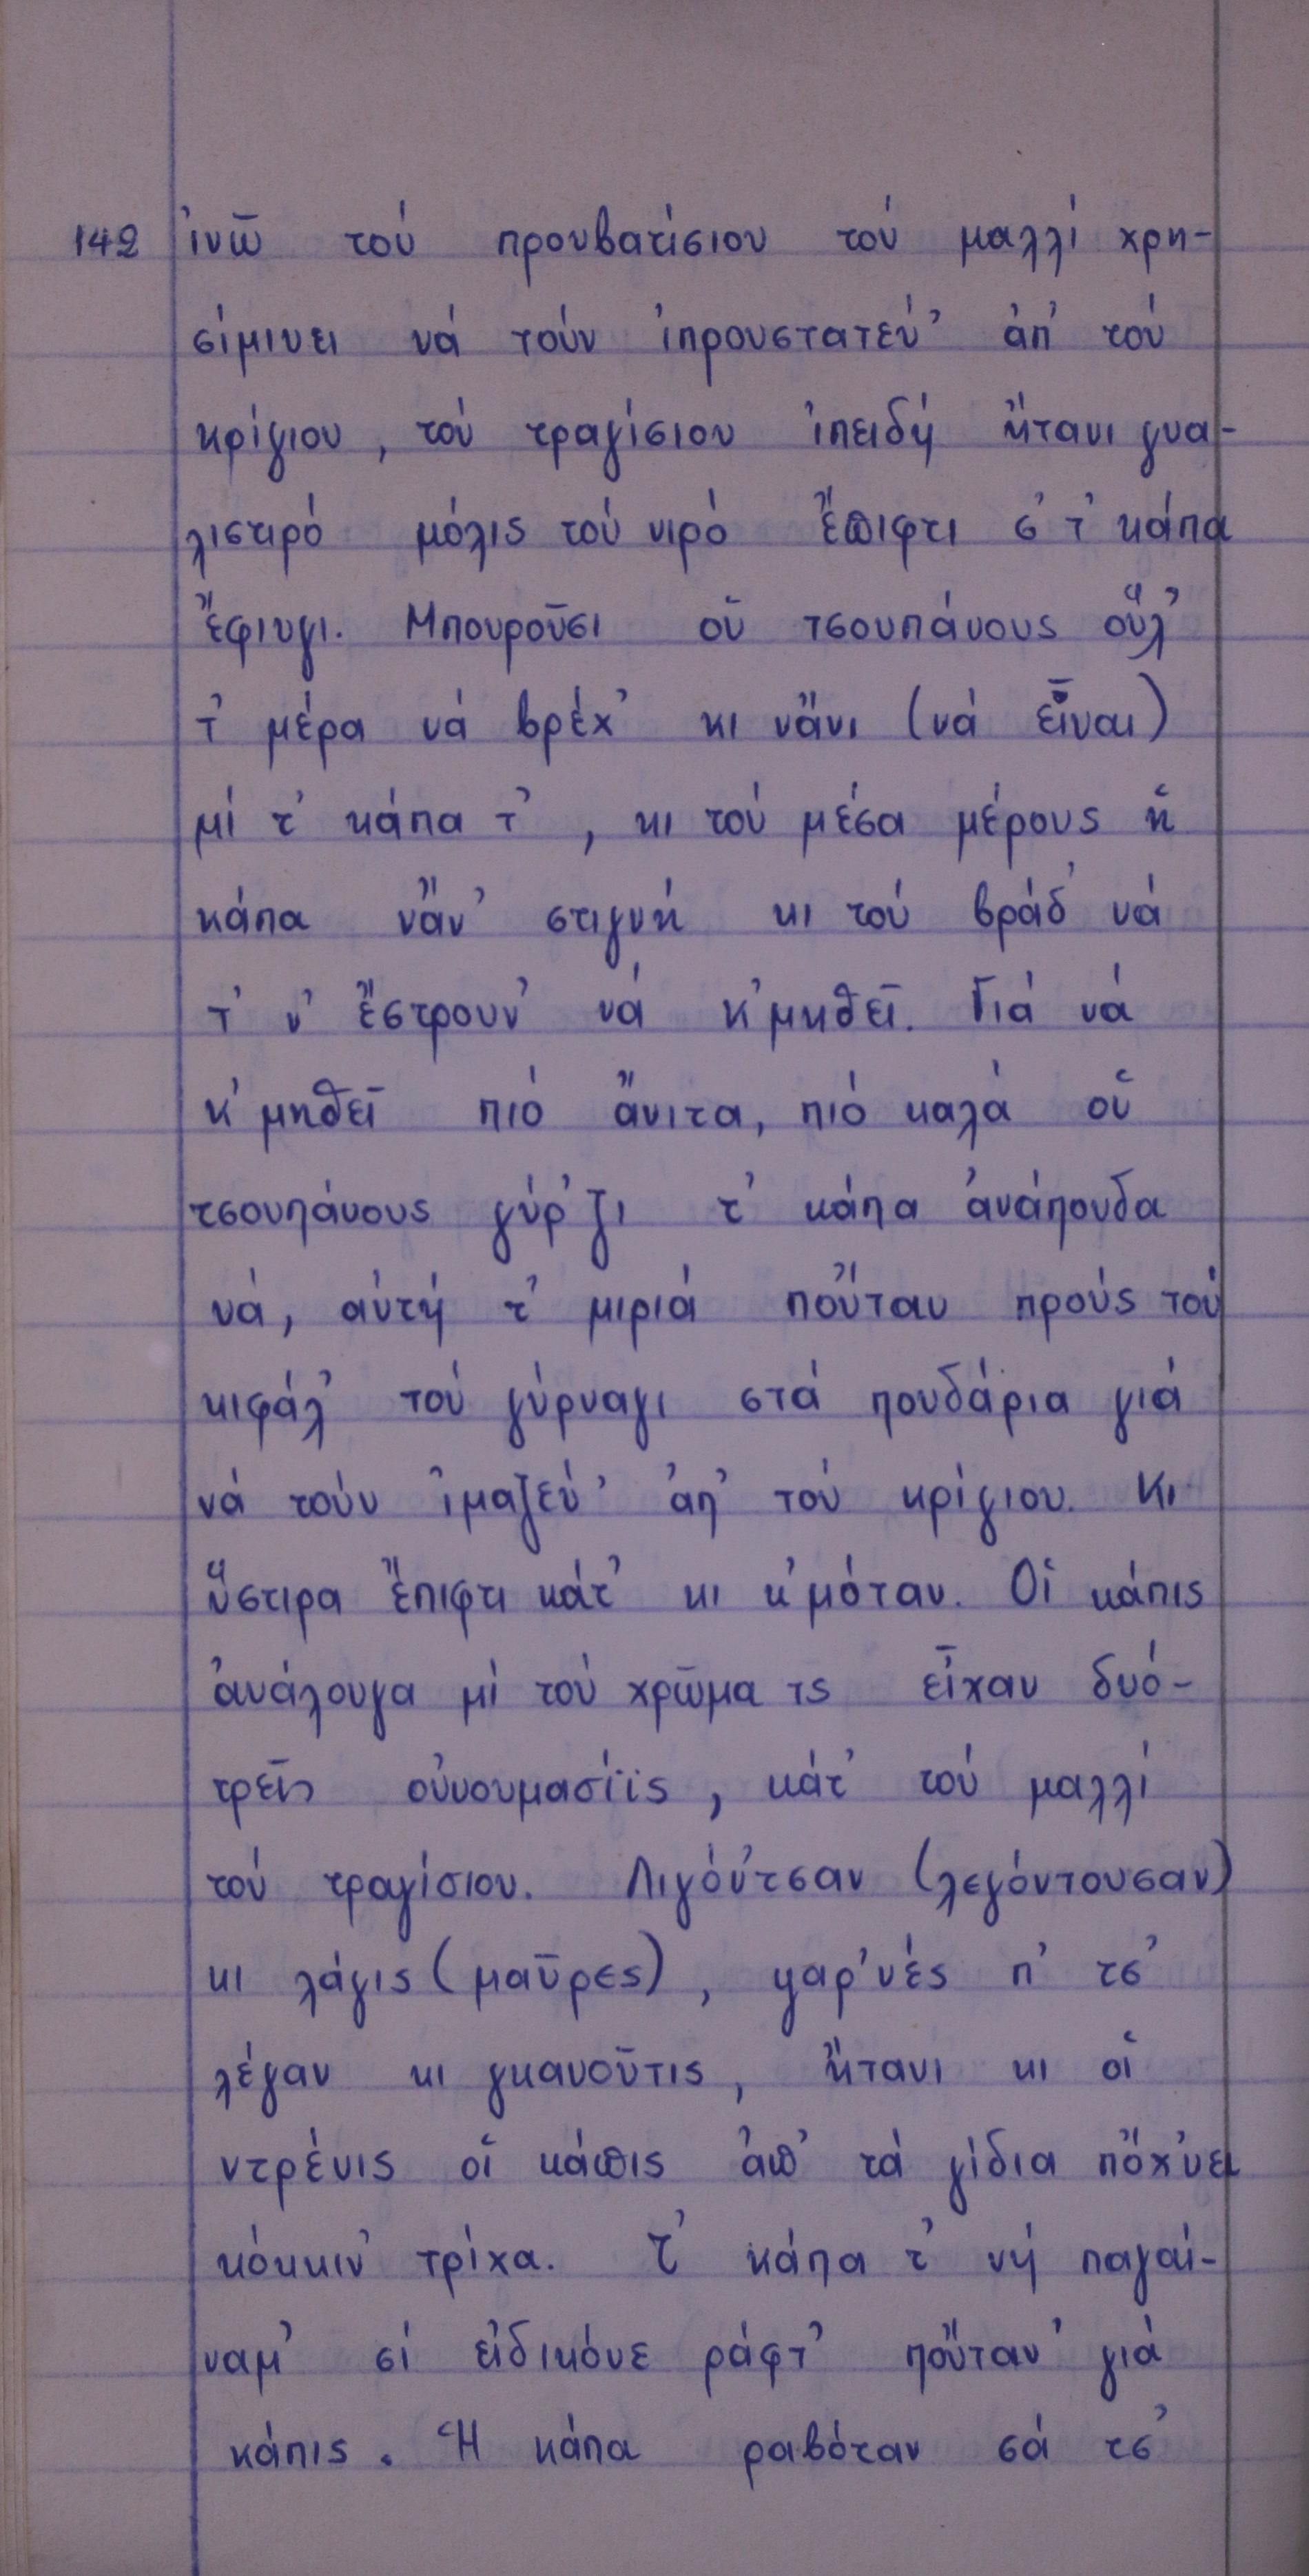 142 ἰνῶ τού προυβατίσιου τού μαλλί χρη-
σίμινει νά τούν ἰπρουστατεύ᾽ ἀπ᾽ τού
κρίγιου, τού τραγίσιου ἰπειδή ἤτανι γυα-
λιστιρό μόλις τού νιρό ἔπιφτι σ᾽ τ᾽ κάπα
ἔφινγι. Μπουροῦσι οὑ τσουπάνους οὕλ᾽
τ᾽ μέρα νά βρέχ᾽ κι νἄνι (νά εἶναι)
μί τ᾽ κάπα τ᾽, κι τού μέσα μέρους ἡ
κάπα νἄν᾽ στιγνή κι τού βράδ᾽ νά
τ᾽ ν᾽ ἔστρουν᾽ νά κ᾽μηθεῖ. Γιά νά
κ᾽μηθεῖ πιό ἄνιτα, πιό καλά οὑ
τσουπάνους γύρ᾽ζι τ᾽ κάπα ἀνάπουδα
νά, αὐτή τ᾽ μιριά ποὔταν προύς τού
κιφάλ᾽ τού γύρναγι στά πουδάρια γιά
νά τούν ἰμαζεύ᾽ ἀπ᾽ τού κρίγιου. Κι
ὕστιρα ἔπιφτι κάτ᾽ κι κ᾽μόταν. Οἱ κάπις
ἀνάλουγα μί τού χρῶμα τς εἶχαν δυό-
τρεῖς οὐνουμασίϊς, κάτ᾽ τού μαλλί
τού τραγίσιου. Λιγόὐτσαν (λεγόντουσαν)
κι λάγις (μαῦρες), ψαρ᾽νές π᾽ τς᾽
λέγαν κι γκανοῦτις, ἤτανι κι οἱ
ντρένις οἱ κάπις ἀπ᾽ τά γίδια πὄχ᾽νει
κόκκιν᾽ τρίχα. Τ᾽ κάπα τ᾽ νή παγαί-
ναμ᾽ σί εἰδικόνε ράφτ᾽ ποὔταν᾽ γιά
κάπις. Ἡ κάπα ραβόταν σά τς᾽